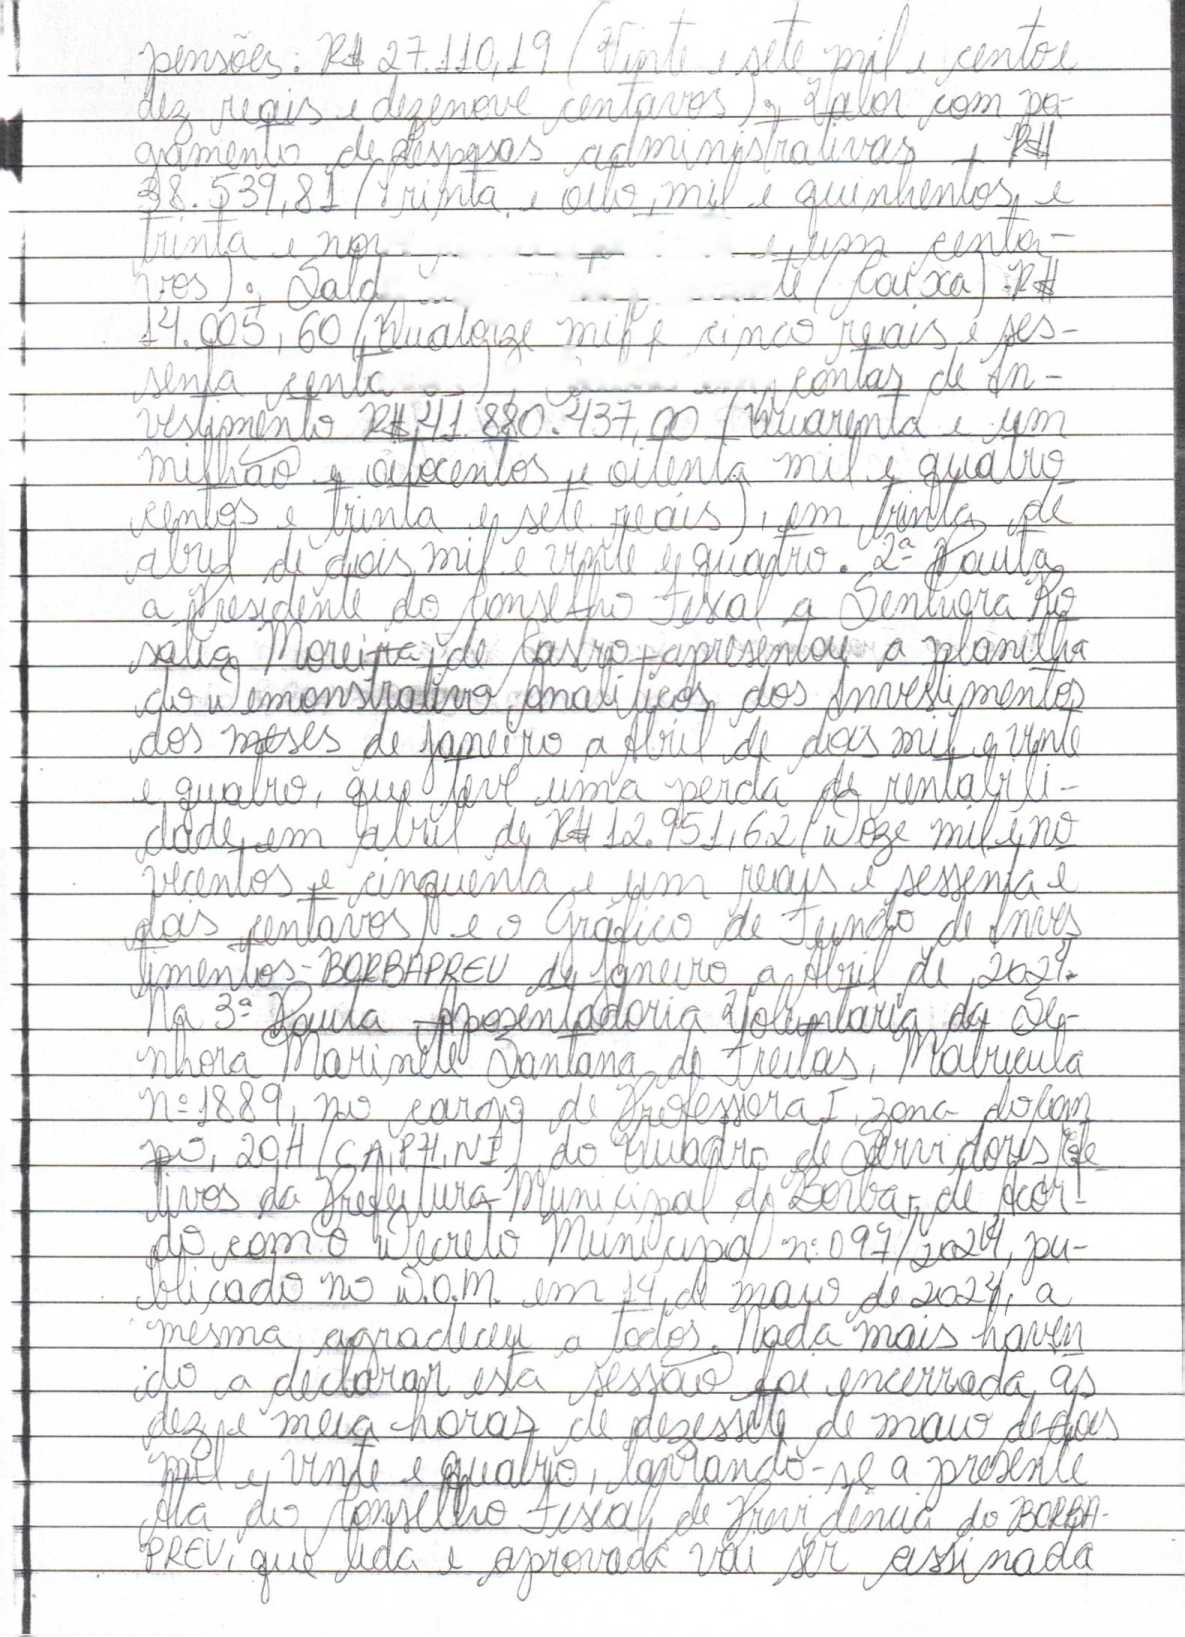 pensões: R$ 27.110,19 (Vinte e sete mil e cento e
dez reais e dezenove centavos); Valor com pa-
gamento de despesas administrativas, R$
38.539,81 (Trinta e oito mil e quinhentos e
trinta e nov e um centa-
vos); Sald te (Caixa): R$
14.005,60 (Quatorze mil e cinco reais e ses-
senta centa ), contas de In-
vestimento R$ 41.880.437,00 (Quarenta e um
milhão e oitocentos e oitenta mil e quatro
centos e trinta e sete reais), em trinta de
abril de dois mil e vinte e quatro. 2ª Pauta
a Presidente do Conselho Fiscal a Senhora Ro
salia Moreira de Castro apresentou a planilha
do Demonstrativo Analiticos dos Investimentos
dos meses de Janeiro a Abril de dois mil e vinte
e quatro, que teve uma perda de rentabili-
dade em abril de R$ 12.951,62 (Doze mil e no
vecentos e cinquenta e um reais e sessenta e
dois centavos) e o Gráfico de Fundo de Inves
timentos-BORBAPREV de Janeiro a Abril de 2024.
Na 3ª Pauta Aposentadoria Voluntaria da Se-
nhora Marinete Santana de Freitas, Matricula
nº 1889, no cargo de Professora I, zona do cam
po, 20H (CA,PH,NI) do Quadro de Servidores Efe
tivos da Prefeitura Municipal de Borba, de Acor-
do com o Decreto Municipal nº 097/2024, pu-
blicado no D.O.M. em 14 de maio de 2024, a
mesma agradeceu a todos. Nada mais haven
do a declarar esta sessão foi encerrada, às
dez e meia horas de dezessete de maio de dois
mil e vinte e quatro, lavrando-se a presente
Ata do Conselho Fiscal de Previdência do BORBA-
PREV, que lida e aprovada vai ser assinada